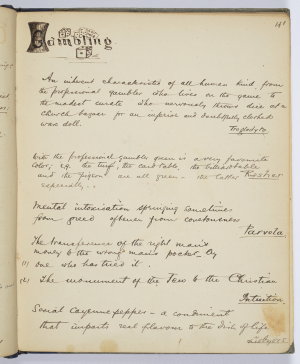 141
Gambling
An inherent characteristic of all human kind, from
the professional gambler who lives on the game to
the modest curate who nervously throws dice at a
church bazaar for an inferior and doubtfully clothed
wax doll.
Troglodyte.
With the professional gambler green is a very favourite
color; e.g. the turf, the card table, the billiard table
and the "pigeon" are all green - the latter
especially..
Kosher
Mental intoxication springing sometimes
from greed oftener from covetousness
Parvola.
The transference of the right man's
money to the wrong man's pocket by
(1) one who has tried it.
(2) The monument of the Jew to the Christian
Intuition
Social Cayenne pepper - a condiment
that imparts real flavour to the dish of life